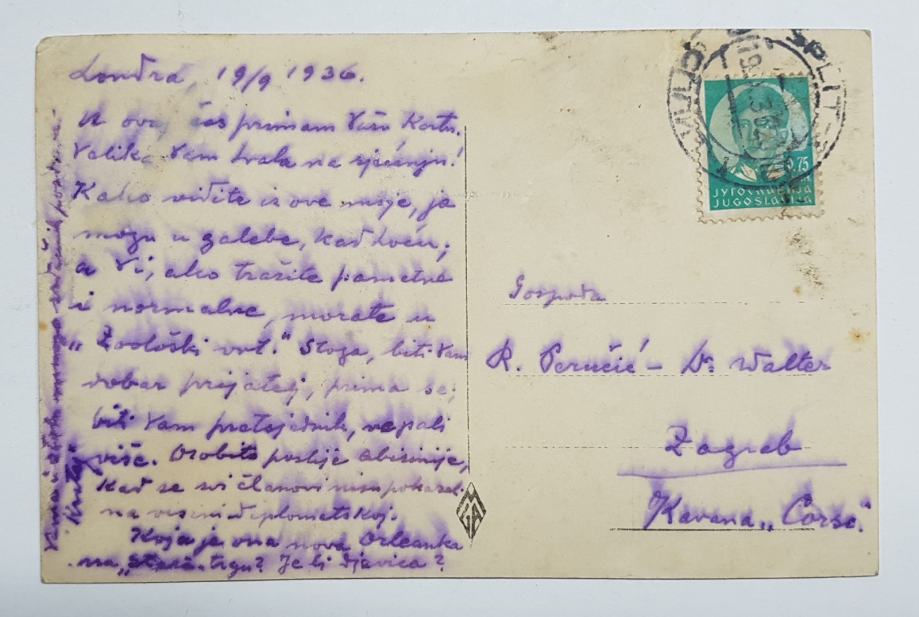 Londra, 19/9 1936.
U ovaj čas primam Vašu Kartu.
Velika Vam hvala na sjećanju!
Kako vidite iz ove moje, ja
mogu u galebe, kad hoću;
a Vi, ako tražite pametne
i normalne, morate u
"Zoološki vrt." Stoga, biti Vam
dobar prijatelj, prima se;
biti Vam pretsjednik, ne pali
više. Osobito poslije Abisinije,
kad se svi članovi nisu pokazali
na visini diplomatskoj.
Koja je ona nova Orleanka
na "Starča-trgu"? Je li djevica?
mnogo srdačnih pozdrava
SPLIT
0.75
ЈУГОСЛАВИЈА
JUGOSLAVIJA
Gospoda
R. Peručić – Dr. Walter
Zagreb
Kavana "Corso"